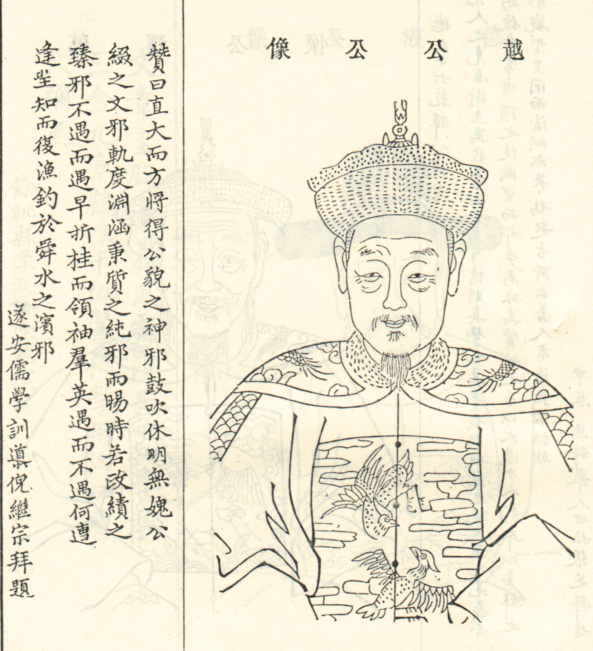 越公公像
贊曰直大而方將得公貌之神邪鼓吹休明無媿公
綴之文邪軌度淵涵秉質之純邪雨暘時若政績之
臻邪不遇而遇早折桂而領袖羣英遇而不遇何遭
逢坐知而復漁釣於舜水之濱邪
遂安儒學訓導倪繼宗拜題